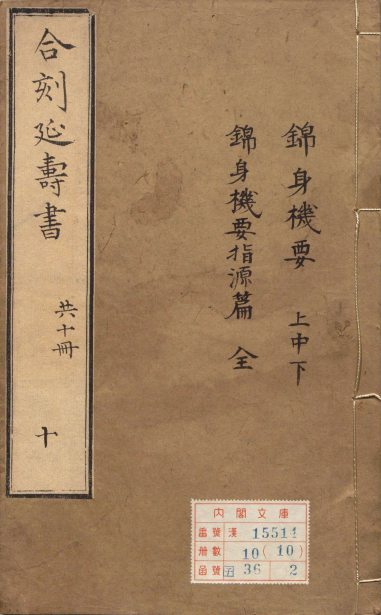 錦身機要 上中下
錦身機要指源篇 全
合刻延壽書
共十冊
十
内閣文庫
番號 漢 15514
冊數 10(10)
函號 子 36 2